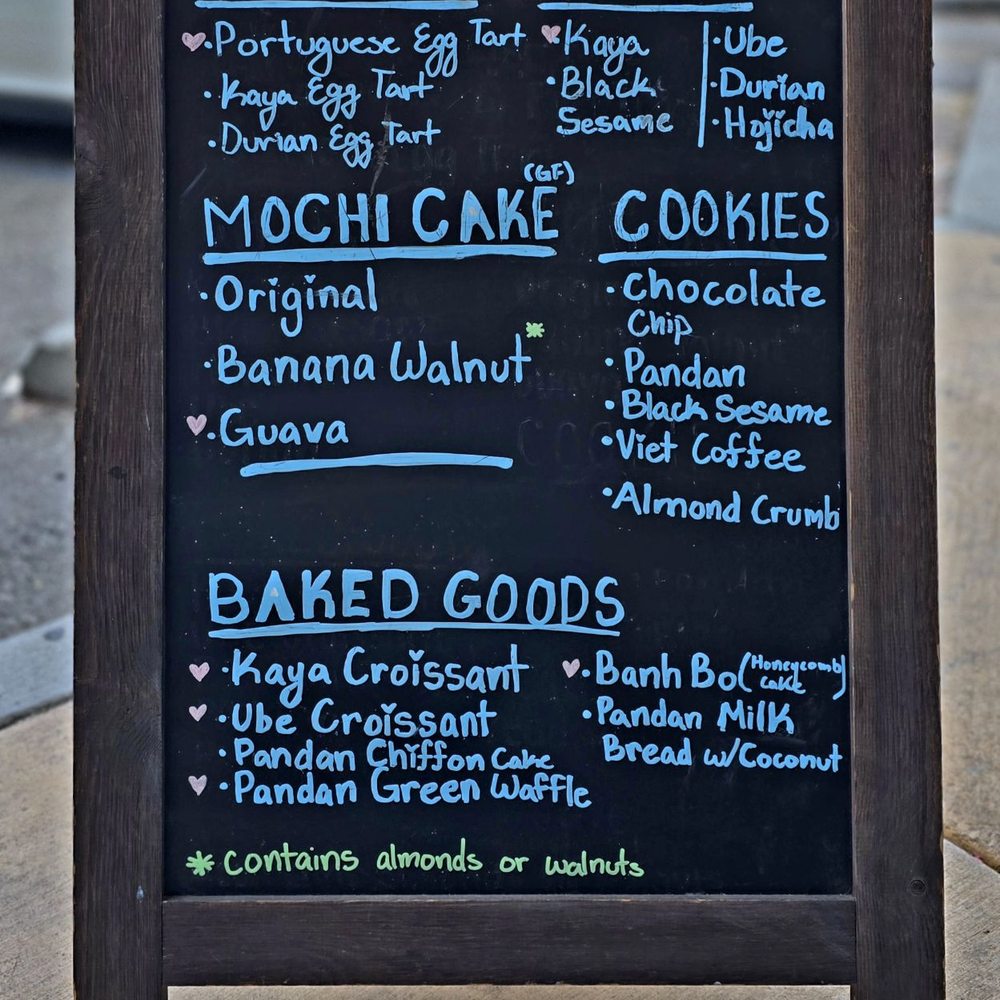 Portuguese Egg Tart
Kaya Egg Tart
Durian Egg Tart
Kaya
Black
Sesame
Ube
Durian
Hojicha
MOCHI CAKE (GF)
Original
Banana Walnut*
Guava
COOKIES
Chocolate
Chip
Pandan
Black Sesame
Viet Coffee
Almond Crumb
BAKED GOODS
Kaya Croissant
Ube Croissant
Pandan Chiffon Cake
Pandan Green Waffle
Banh Bo (Honeycomb
Cake)
Pandan Milk
Bread w/Coconut
* Contains almonds or walnuts